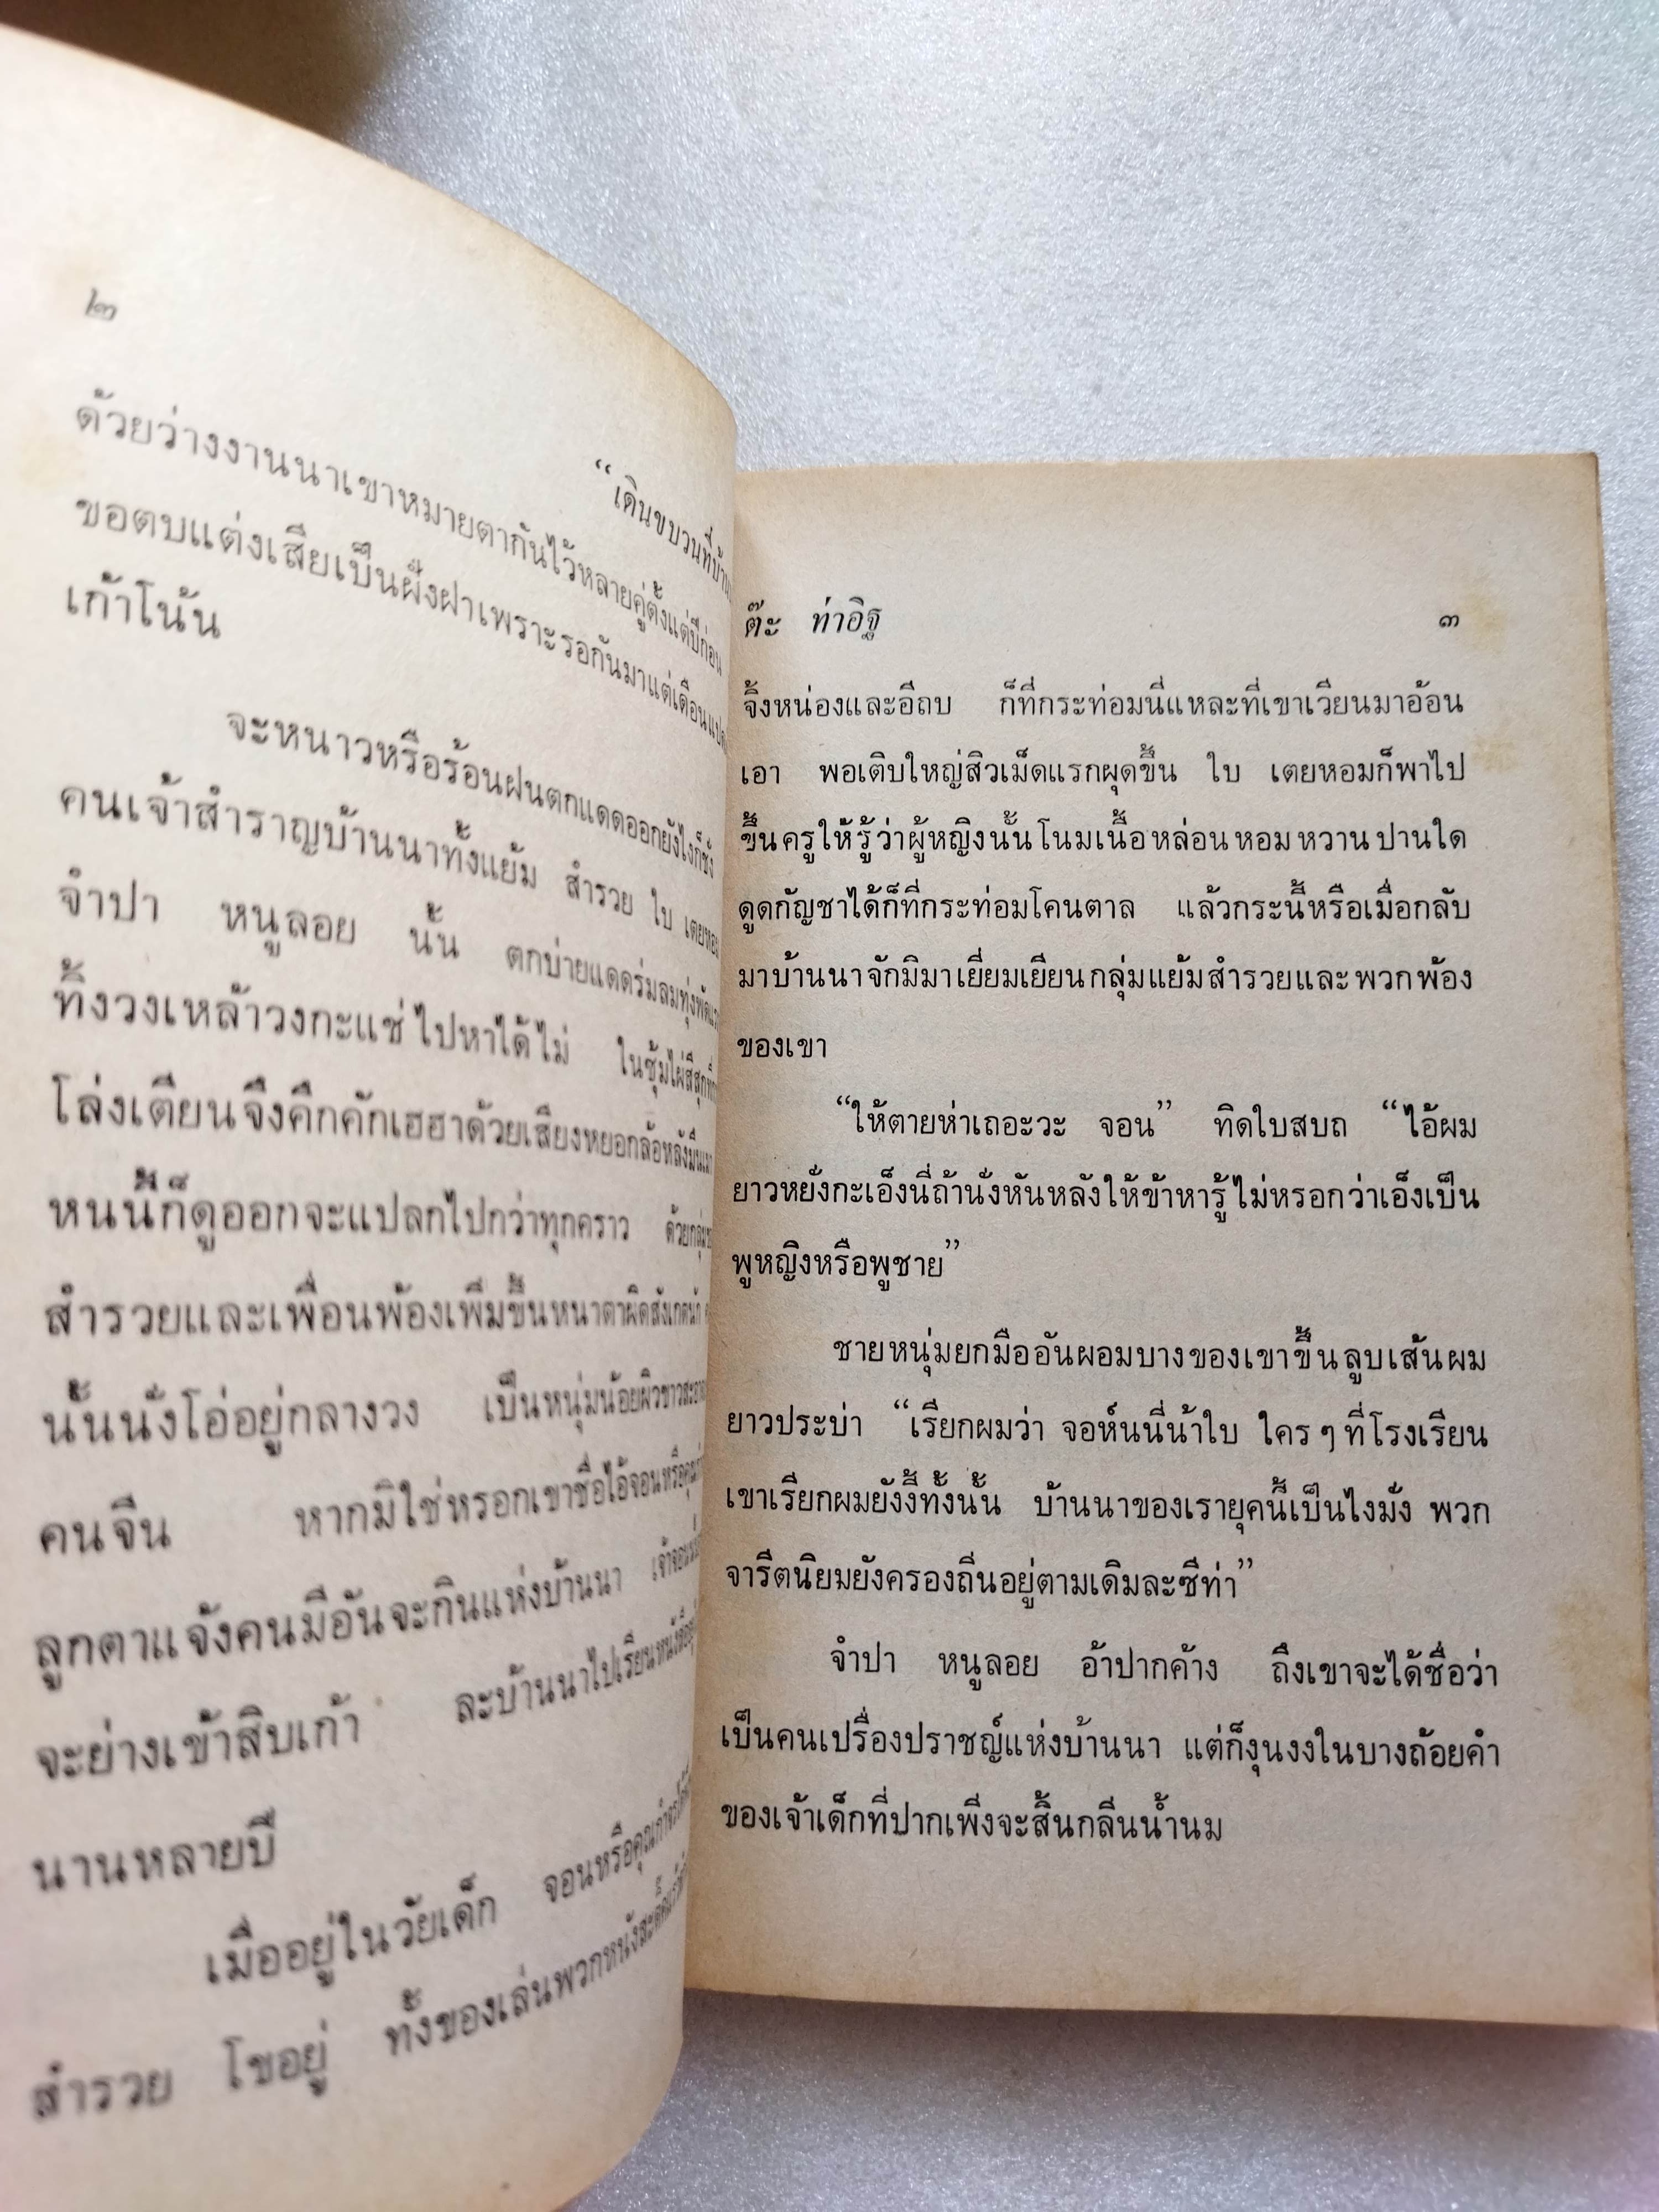 ๒
“เดินขบวนที่บ้าน
ด้วยว่างงานนาเขาหมายตากันไว้หลายคู่ตั้งแต่ปีก่อน
ขอตบแต่งเสียเป็นฝั่งฝาเพราะรอกันมาแต่เดือนแปด
เก้าโน้น
จะหนาวหรือร้อนฝนตกแดดออกยังไงก็ช่าง
คนเจ้าสำราญบ้านนาทั้งแย้ม สำรวย ใบ เตยหอม
จำปา หนูลอย นั้น ตกบ่ายแดดร่มลมทุ่งพัด
ทิ้งวงเหล้าวงกะแช่ไปหาได้ไม่ ในซุ้มไผ่สีสุก
โล่งเตียนจึงคึกคักเฮฮาด้วยเสียงหยอกล้อหลัง
หนนี้ก็ดูออกจะแปลกไปกว่าทุกคราว ด้วยกลุ่ม
สำรวยและเพื่อนพ้องเพิ่มขึ้นหนาตาผิดสังเกตนัก
นั้นนั่งโอ่อยู่กลางวง เป็นหนุ่มน้อยผิวขาวสะอาด
คนจีน หากมิใช่หรอกเขาชื่อไอ้จอนหรือคุณ
ลูกตาแจ้งคนมีอันจะกินแห่งบ้านนา เจ้าจอน
จะย่างเข้าสิบเก้า ละบ้านนาไปเรียนหนังสืออยู่
นานหลายปี
เมื่ออยู่ในวัยเด็ก จอนหรือคุณ
สำรวย โขอยู่ ทั้งของเล่นพวกหนังสะติ๊ก
ต๊ะ ท่าอิฐ ๓
จิ้งหน่องและอีถบ ก็ที่กระท่อมนี่แหละที่เขาเวียนมาอ้อน
เอา พอเติบใหญ่สิวเม็ดแรกผุดขึ้น ใบ เตยหอมก็พาไป
ขึ้นครูให้รู้ว่าผู้หญิงนั้นโนมเนื้อหล่อนหอมหวานปานใด
ดูดกัญชาได้ก็ที่กระท่อมโคนตาล แล้วกระนี้หรือเมื่อกลับ
มาบ้านนาจักมิมาเยี่ยมเยียนกลุ่มแย้มสำรวยและพวกพ้อง
ของเขา
“ให้ตายห่าเถอะวะ จอน” ทิดใบสบถ “ไอ้ผม
ยาวหยั่งกะเอ็งนี่ถ้านั่งหันหลังให้ข้าหารู้ไม่หรอกว่าเอ็งเป็น
พูหญิงหรือพูชาย”
ชายหนุ่มยกมืออันผอมบางของเขาขึ้นลูบเส้นผม
ยาวประบ่า “เรียกผมว่า จอห์นนี่น้าใบ ใครๆที่โรงเรียน
เขาเรียกผมยังงี้ทั้งนั้น บ้านนาของเรายุคนี้เป็นไงมั่ง พวก
จารีตนิยมยังครองถิ่นอยู่ตามเดิมละซีท่า”
จำปา หนูลอย อ้าปากค้าง ถึงเขาจะได้ชื่อว่า
เป็นคนเปรื่องปราชญ์แห่งบ้านนา แต่ก็งุนงงในบางถ้อยคำ
ของเจ้าเด็กที่ปากเพิ่งจะสิ้นกลิ่นน้ำนม